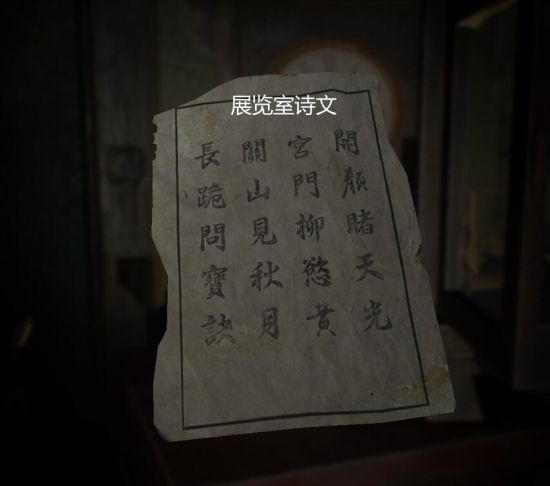 展览室诗文
開顏睹天光
宮門柳慾黃
關山見秋月
長跪問寶訣